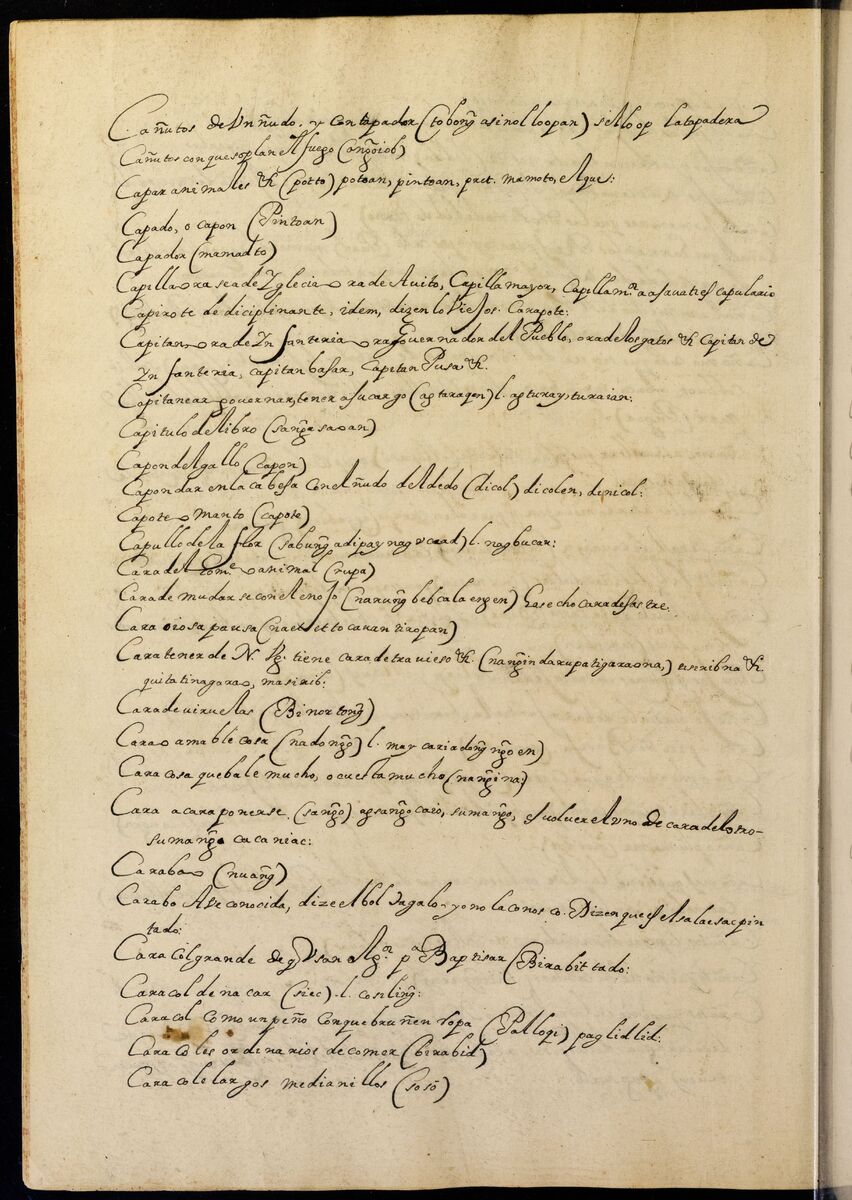 Cañutos de Vn ñudo, y con tapador (tobong̃ asinol loopan) sēlloop la tapadera
Cañutos con que soplan el fuego (ang̃oiob)
Capar animales &. (potto) potoan, pintoan, pret. mamoto, el que:
Capado, o capon (Pintoan)
Capador (mamadto)
Capilla o rasea de Yglecia o ra de Auito, Capilla mayor, Capilla
Capirote de diciplinante, idem, dizen lo Viejos. Carapote:
Capitan, o ra de Ynfanteria o ra Gouernador del Pueblo, o ra de los gatos &. Capitan de
Ynfanteria, capitan basar, Capitan Pusa &.
Capitanear gouernar, tener a su cargo (agtaragen) l. agturay, turaian:
Capitulo de libro (sang̃a saoan)
Capon de gallo (capon)
Capon dar en la cabesa con el ñudo del dedo (dicol) dicolen, dinicol:
Capote o manto (capote)
Capullo de la flor (sabung̃ adipay nag vcaad) l. nagbucar:
Cara del ome. o animal (rupa)
Cara de mudarse con el enojo (narung̃ bebcalaengen) hase echo cara desastre.
Cara oiosa pausa (naet et to cauan tiropan)
Cara tener de N. Pg. tiene cara de trauieso &. (nang̃in darupatigaraona,) ensiribna &.
quitatinagarao, masirib:
Cara de viruelas (Binortong̃)
Cara o amable cosa (nadong̃o) l. may cariadong̃ng̃oen)
Cara cosa que bale mucho, o cuesta mucho (nang̃ina:)
Cara a cara ponerse (sang̃o) agsang̃o caio, sumang̃o, el voluer el vno de cara del otro-
sumang̃o ca caniac:
Carabao (nuang̃)
Carabo Ave conocida, dize el bol Vagalo y yo no la conosco. Dizen que es el salaesac pin
tado:
Caracol grande de q Vsan pa Baptisar (Birabittado:
Caracol de nacar (siec) l. cosiling̃:
Caracol como un peño con que bruñen ropa (Palloqi) paglidlid:
Caracoles ordinarios de comer (birabid)
Caracoles largos medianillos (soso)